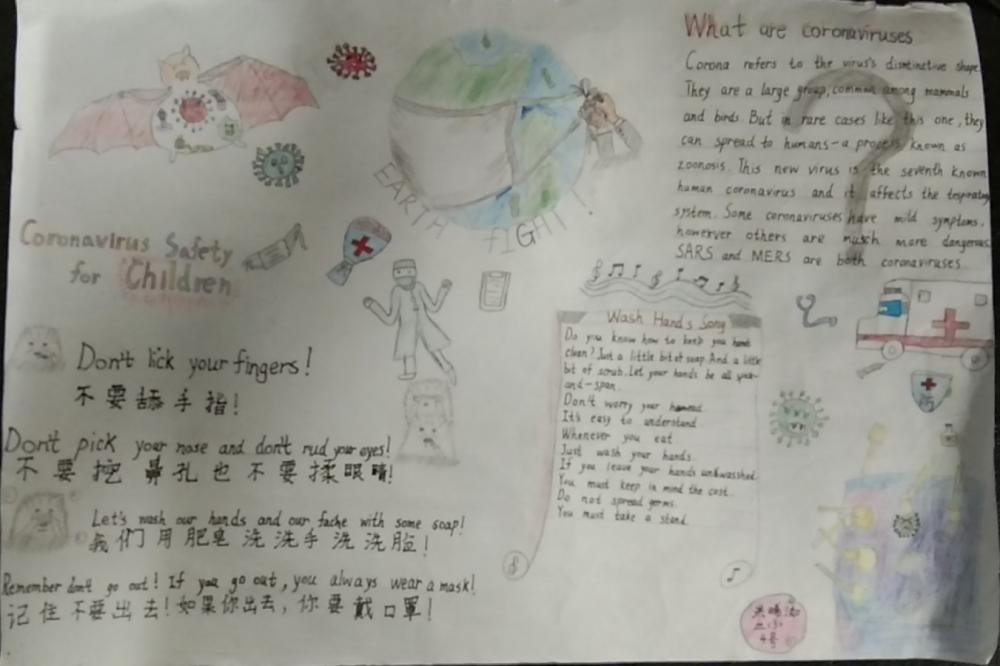 What are coronaviruses
Corona refers to the virus's distinctive shape.
They are a large group, common among mammals
and birds. But in rare cases like this one, they
can spread to humans-a process known as
zoonosis. This new virus is the seventh known
human coronavirus and it affects the respiratory
system. Some coronaviruses have mild symptoms,
however others are much more dangerous
SARS and MERS are both coronaviruses
EARTH
FIGHT!
Coronavirus Safety
for Children
Don't lick your fingers!
不要舔手指!
Don't pick your nose and don't rud your eyes!
不要挖鼻孔也不要揉眼睛!
Let's wash our hands and our fache with some soap!
我们用肥皂洗洗手洗洗脸!
Remember don't go out! If you go out, you always wear a mask!
记住不要出去!如果你出去,你要戴口罩!
Wash Hands Song
Do you know how to keep you hands
clean? Just a little bit of soap. And a little
bit of scrub. Let your hands be all
and-span.
Don't worry your
It's easy to understand.
Whenever you eat
Just wash your hands.
If you leave your hands unkwasshed.
You must keep in mind the cost.
Do not spread germs.
You must take a stand.
4号